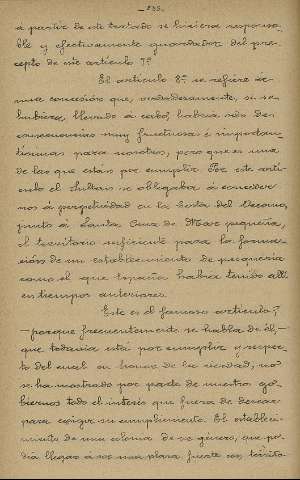 á partir de este tratado se hiciera responsa-
ble y efectivamente guardador del pre-
cepto de su artículo 7º
El artículo 8º se refiere á
una concesión que, verdaderamente, si se
hubiera llevado á cabo, habría sido de
consecuencias muy fructuosas é importan-
tísimas para nosotros, pero que es una
de las que están por cumplir. Por este artí-
culo el Sultan se obligaba á conceder-
nos á perpetuidad en la costa del Oceano,
junto á Santa Cruz de Mar pequeña,
el territorio suficiente para la forma-
ción de un establecimiento de pesquería
como el que España había tenido allí
en tiempos anteriores.
Este es el famoso artículo,
-porque frecuentemente se habla de él,-
que todavía está por cumplir y respec-
to del cual en honor de la verdad, no
se ha mostrado por parte de nuestros go-
biernos todo el interés que fuera de desear
para exigir su cumplimiento. El estableci-
miento de una colonia de ese género, que po-
día llegar á ser una plaza fuerte en territo-